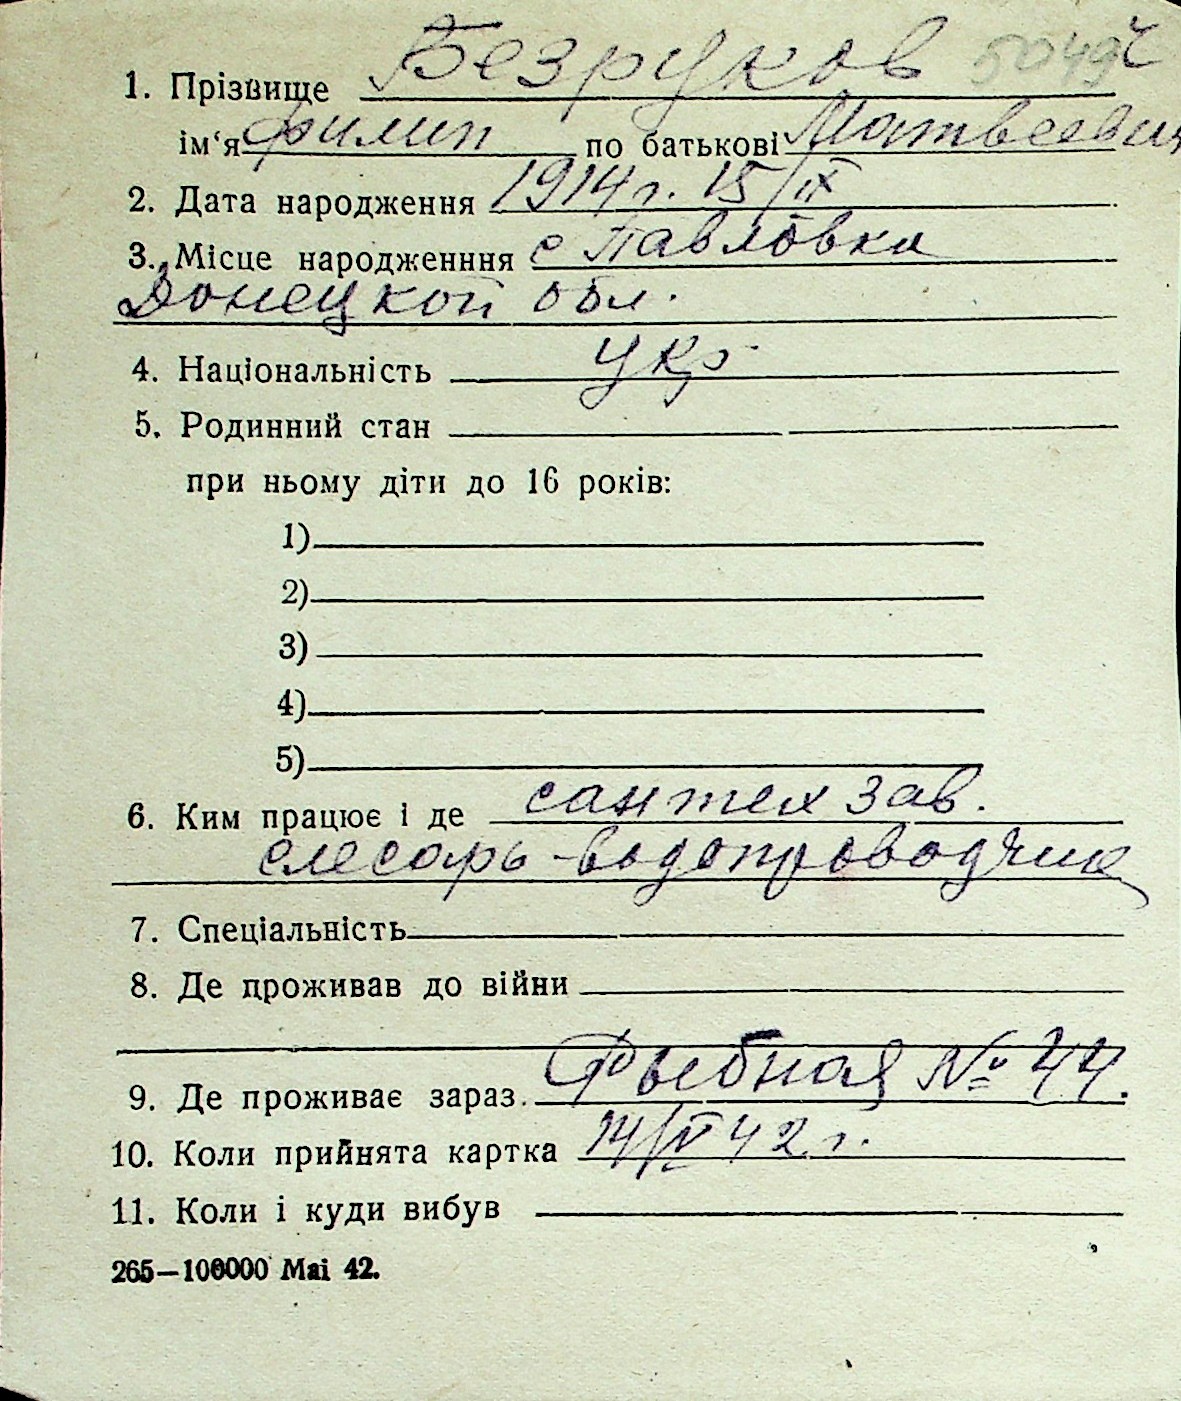 1. Прізвище Безруков 5049 ч
ім'я Филип по батькові Матвеевич
2. Дата народження 1914 г. 15/IX
3. Місце народженння с Павловка
Донецкой обл.
4. Національність укр.
5. Родинний стан
при ньому діти до 16 років:
1)
2)
3)
4)
5)
6. Ким працює і де сантех зав.
слесарь-водопроводчик
7. Спеціальність
8. Де проживав до війни
9. Де проживає зараз. №
10. Коли прийнята картка 14/V 42 г.
11. Коли і куди вибув
265—100000 Mai 42.